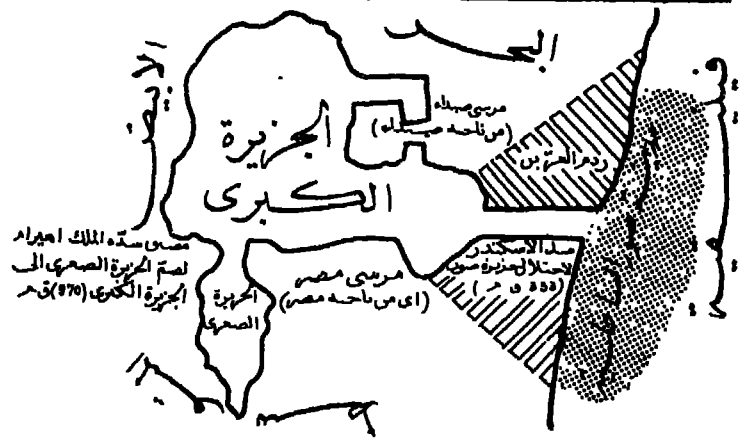 البحر
الابيض
فينيقية
مرسى صيداء
(من ناحية صيداء)
ردم العز بن
الجزيرة
الكبرى
مضيق سدّه الملك احيرام
لضمّ الجزيرة الصغرى الى
الجزيرة الكبرى (970) ق م
الجزيرة
الصغرى
مرسى مصر
(اى من ناحية مصر)
سد الاسكندر
لاحتلال جزيرة صور
(333 ق م)